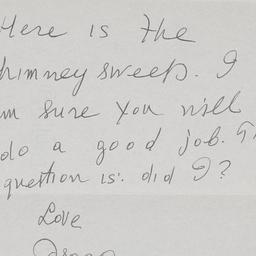 Here is the
himney sweep. I
m sure you will
do a good job. Th
question is: did I?
Love